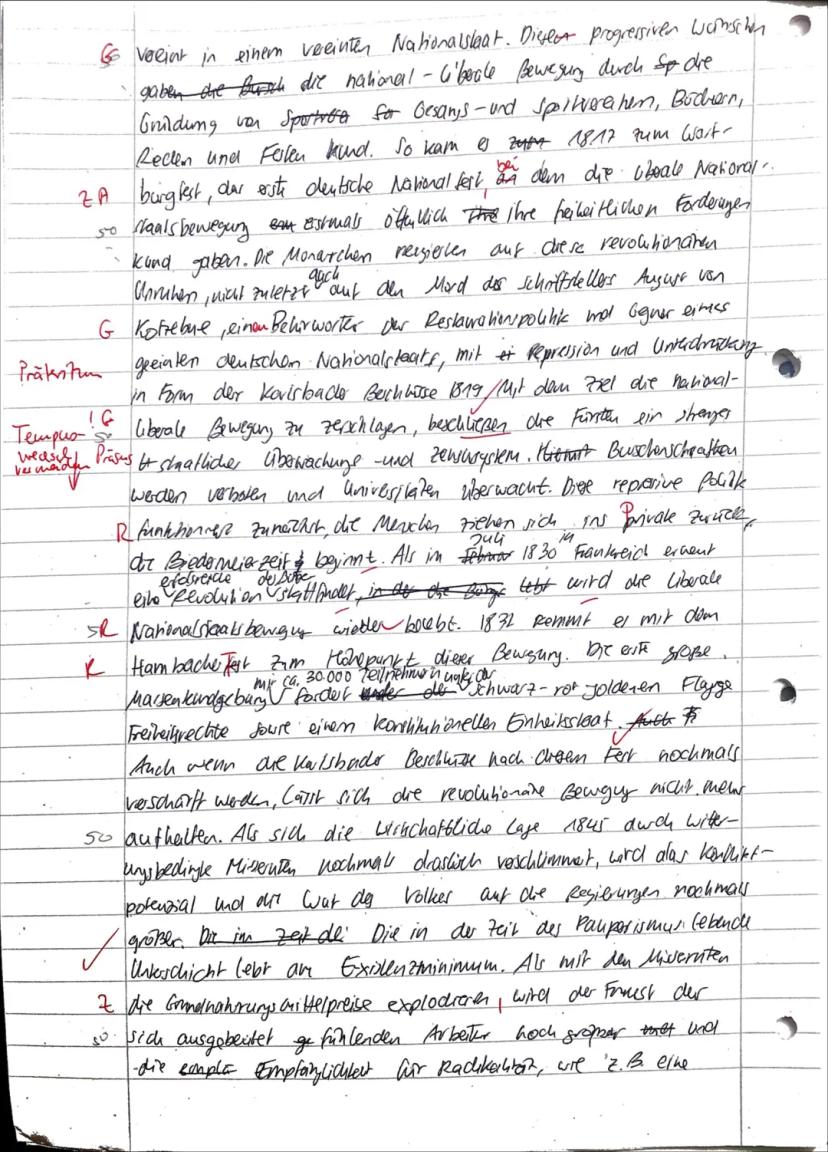 G vereint in einem vereinten Nationalstaat. Diesen progressiven Wünschen
gaben die Bursch die national-liberale Bewegung durch Sp die
Gründung von Gesangs- und Sportvereinen, Büchern,
Reden und Festen kund. So kam es zum 1817 zum Wart-
Z A burgfest, das erste deutsche Nationalfest, bei dem die liberale National-
50 staatsbewegung erstmals öffentlich ihre freiheitlichen Forderungen
kund gaben. Die Monarchen reagierten auf diese revolutionären
Unruhen, nicht zuletzt auch auf den Mord des Schriftstellers August von
G Kotzebue, einen Befürworter der Restaurationspolitik und Gegner eines
geeinten deutschen Nationalstaats, mit Repression und Unterdrückung
Präteritum in Form der Karlsbader Beschlüsse 1819. Mit dem Ziel die national-
! G liberale Bewegung zu zerschlagen, beschließen die Fürsten ein strenges
Tempus- wechsel vermeiden Präsens staatliches Überwachungs- und Zensursystem. Burschenschaften
werden verboten und Universitäten überwacht. Diese repressive Politik
R funktioniert zunächst, die Menschen ziehen sich ins Private zurück,
die Biedermeierzeit beginnt. Als im Februar Juli 1830 in Frankreich erneut
eine erfolgreiche Revolution stattfindet, in der die Bürge lebt wird die liberale
R Nationalstaatsbewegung wieder belebt. 1832 kommt es mit dem
R Hambacher Fest zum Höhepunkt dieser Bewegung. Die erste große
Massenkundgebung mit ca. 30.000 Teilnehmern fordert unter der schwarz-rot goldenen Flagge
Freiheitsrechte sowie einem konstitutionellen Einheitsstaat. Auch
Auch wenn die Karlsbader Beschlüsse nach diesem Fest nochmals
verschärft werden, lässt sich die revolutionäre Bewegung nicht mehr
50 aufhalten. Als sich die wirtschaftliche Lage 1845 durch witter-
ungsbedingte Missernten nochmals drastisch verschlimmert, wird das Konflikt-
potenzial und die Wut des Volkes auf die Regierungen nochmals
größer. Die im Zeit der Die in der Zeit des Pauperismus lebende
Unterschicht lebt am Existenzminimum. Als mit den Missernten
Z die Grundnahrungsmittelpreise explodieren, wird der Frust der
sich ausgebeutet ge fühlenden Arbeiter noch größer und
die Empfänglichkeit für Radikalität, wie z.B. eine